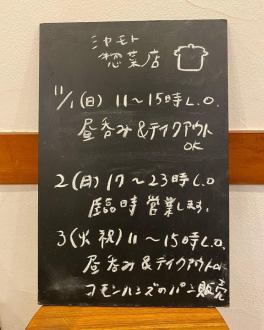 シャモト
惣菜店
11/1(日) 11〜15時L.O.
昼呑み&テイクアウト
OK
2(月) 17〜23時L.O
臨時営業します。
3(火祝) 11〜15時L.O.
昼呑み&テイクアウトOK
コモンハンズのパン販売